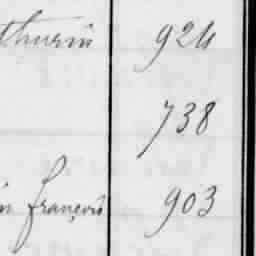 thurin 924
738
in françois 903